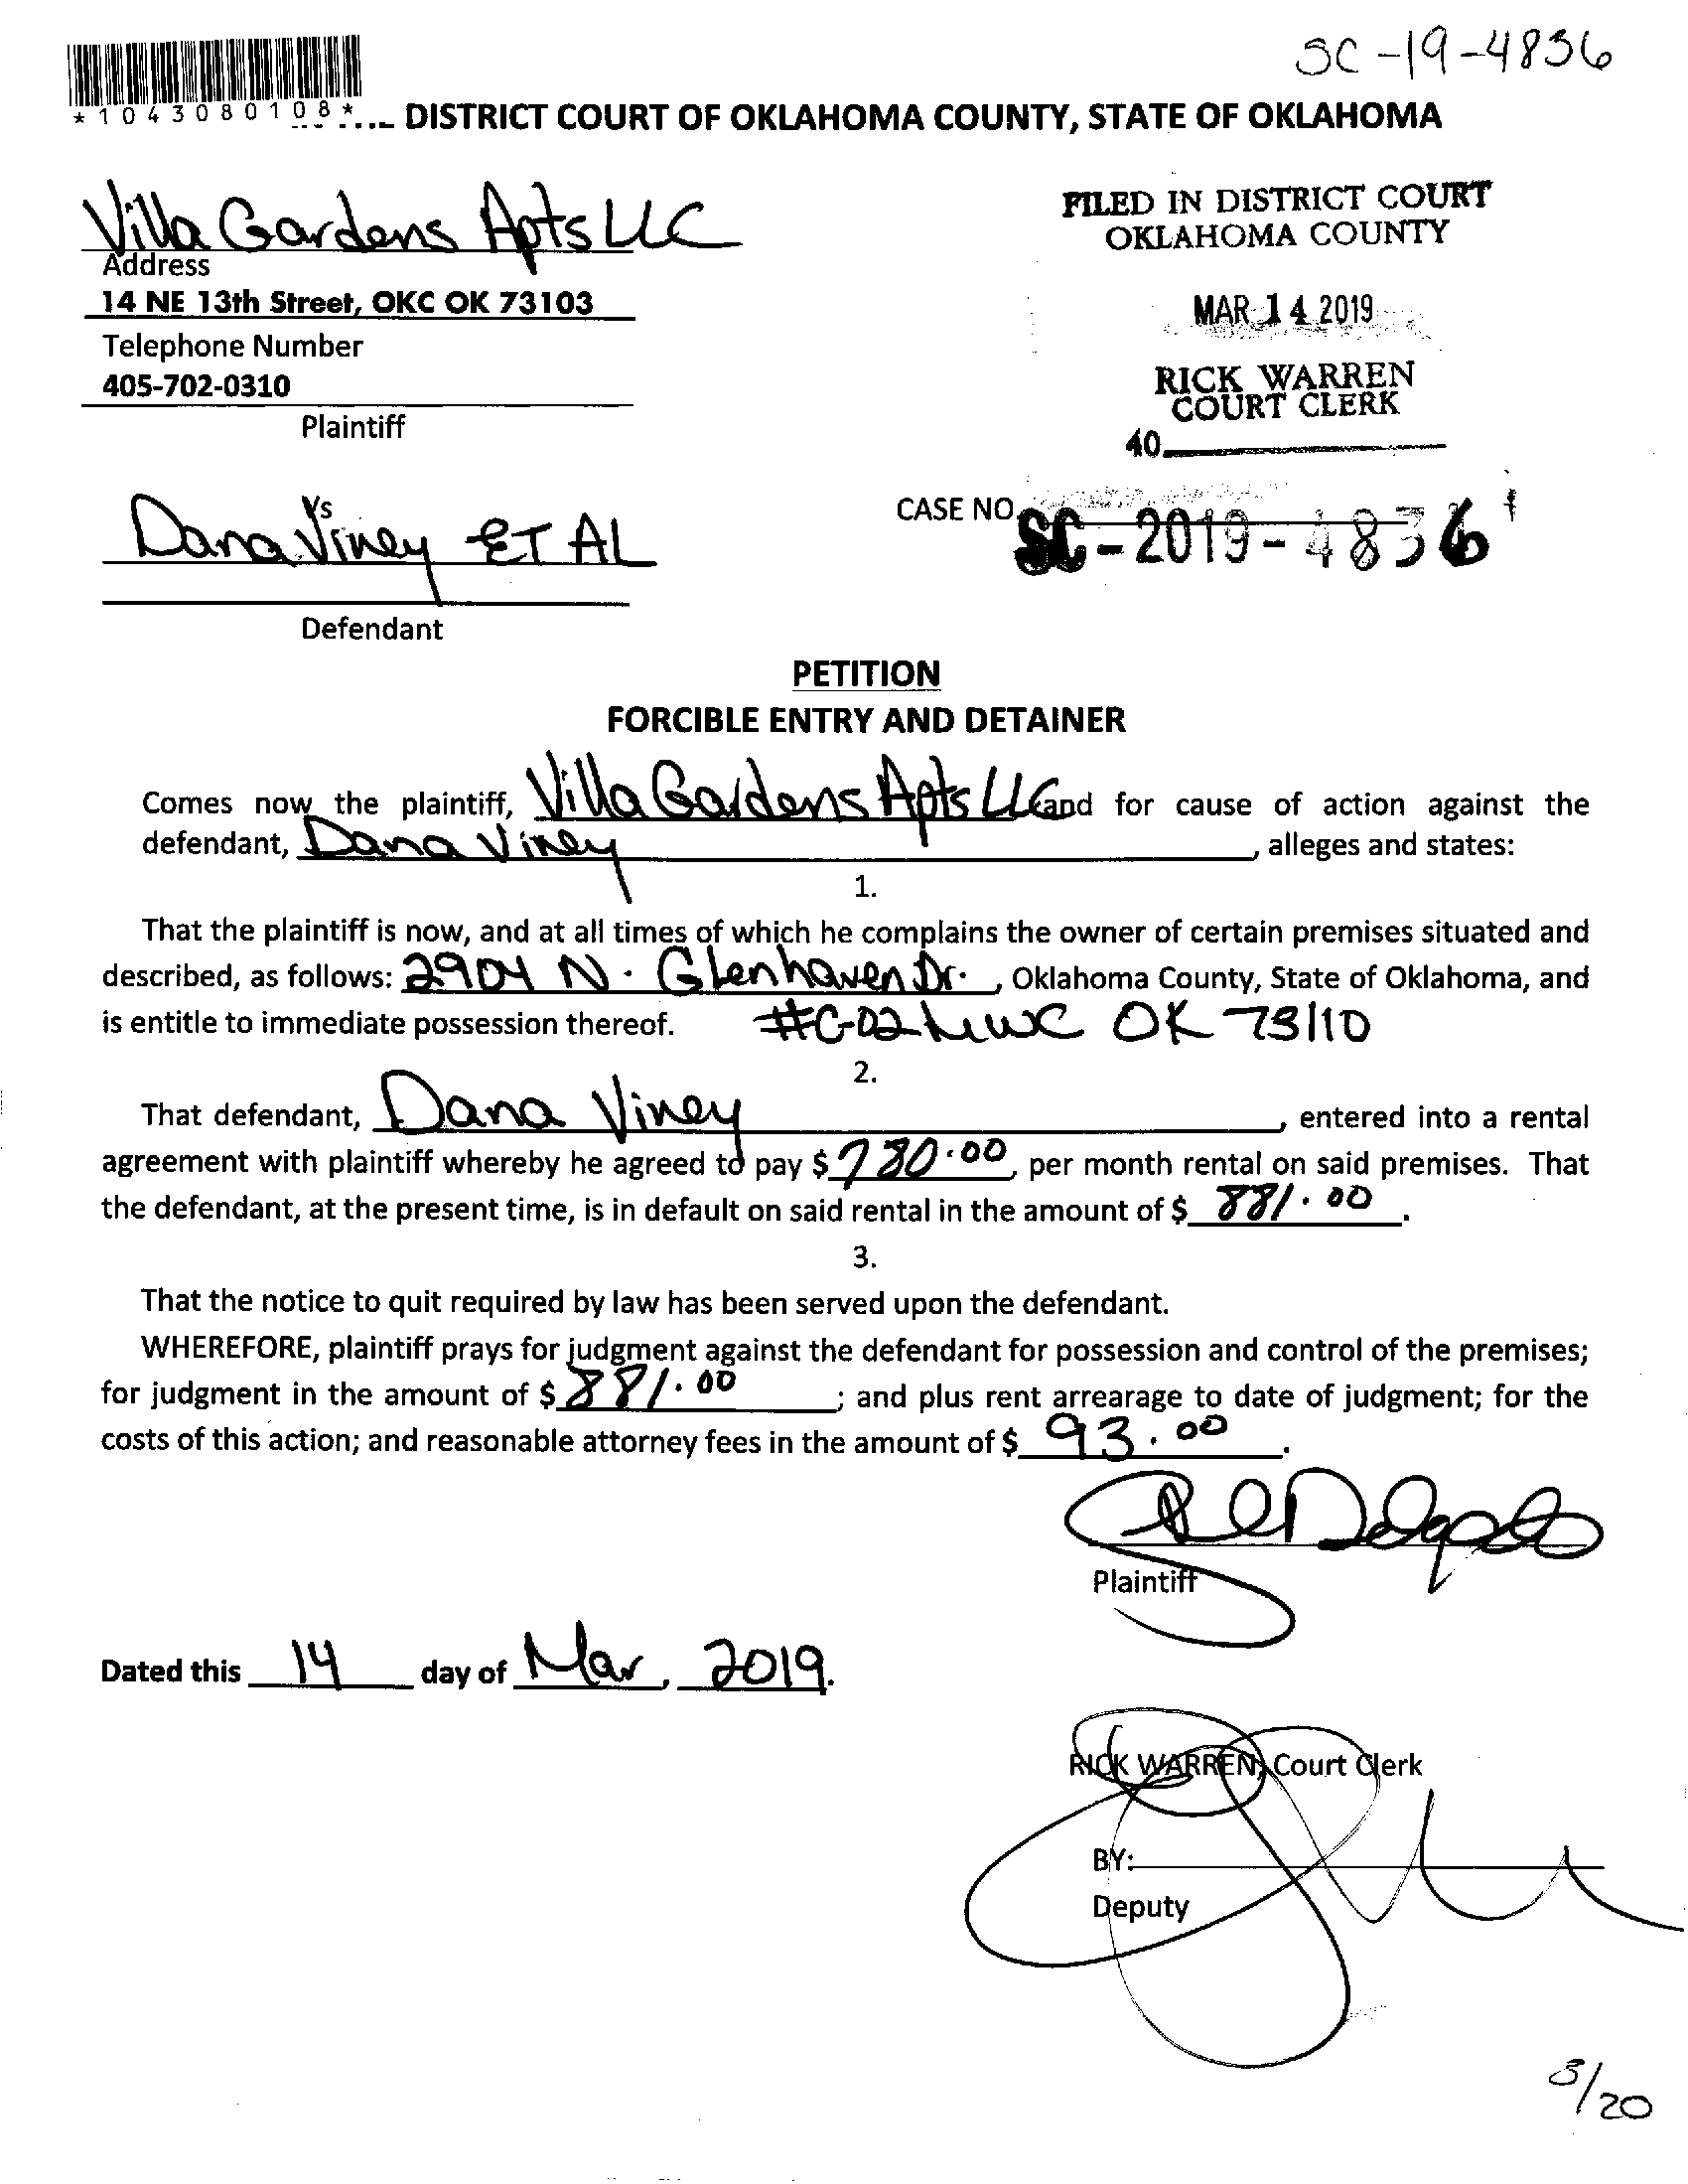 SC-19-4836
*1043080108*
DISTRICT COURT OF OKLAHOMA COUNTY, STATE OF OKLAHOMA
Villa Gardens Apts LLC
Address
14 NE 13th Street, OKC OK 73103
Telephone Number
405-702-0310
Plaintiff
FILED IN DISTRICT COURT
OKLAHOMA COUNTY
MAR 14 2019
RICK WARREN
COURT CLERK
40
Vs
Dana Viney ET AL
Defendant
CASE NO. SC-2019-4836
PETITION
FORCIBLE ENTRY AND DETAINER
Comes now the plaintiff, Villa Gardens Apts LLC and for cause of action against the
defendant, Dana Viney, alleges and states:
1.
That the plaintiff is now, and at all times of which he complains the owner of certain premises situated and
described, as follows: 2904 N. Glenhaven Dr., Oklahoma County, State of Oklahoma, and
is entitle to immediate possession thereof. MWC OK 73110
2.
That defendant, Dana Viney, entered into a rental
agreement with plaintiff whereby he agreed to pay $ 780.00, per month rental on said premises. That
the defendant, at the present time, is in default on said rental in the amount of $ 881.00.
3.
That the notice to quit required by law has been served upon the defendant.
WHEREFORE, plaintiff prays for judgment against the defendant for possession and control of the premises;
for judgment in the amount of $ 881.00; and plus rent arrearage to date of judgment; for the
costs of this action; and reasonable attorney fees in the amount of $ 93.00.
Plaintiff
Dated this 14 day of Mar, 2019.
RICK WARREN, Court Clerk
BY:
Deputy
3/20